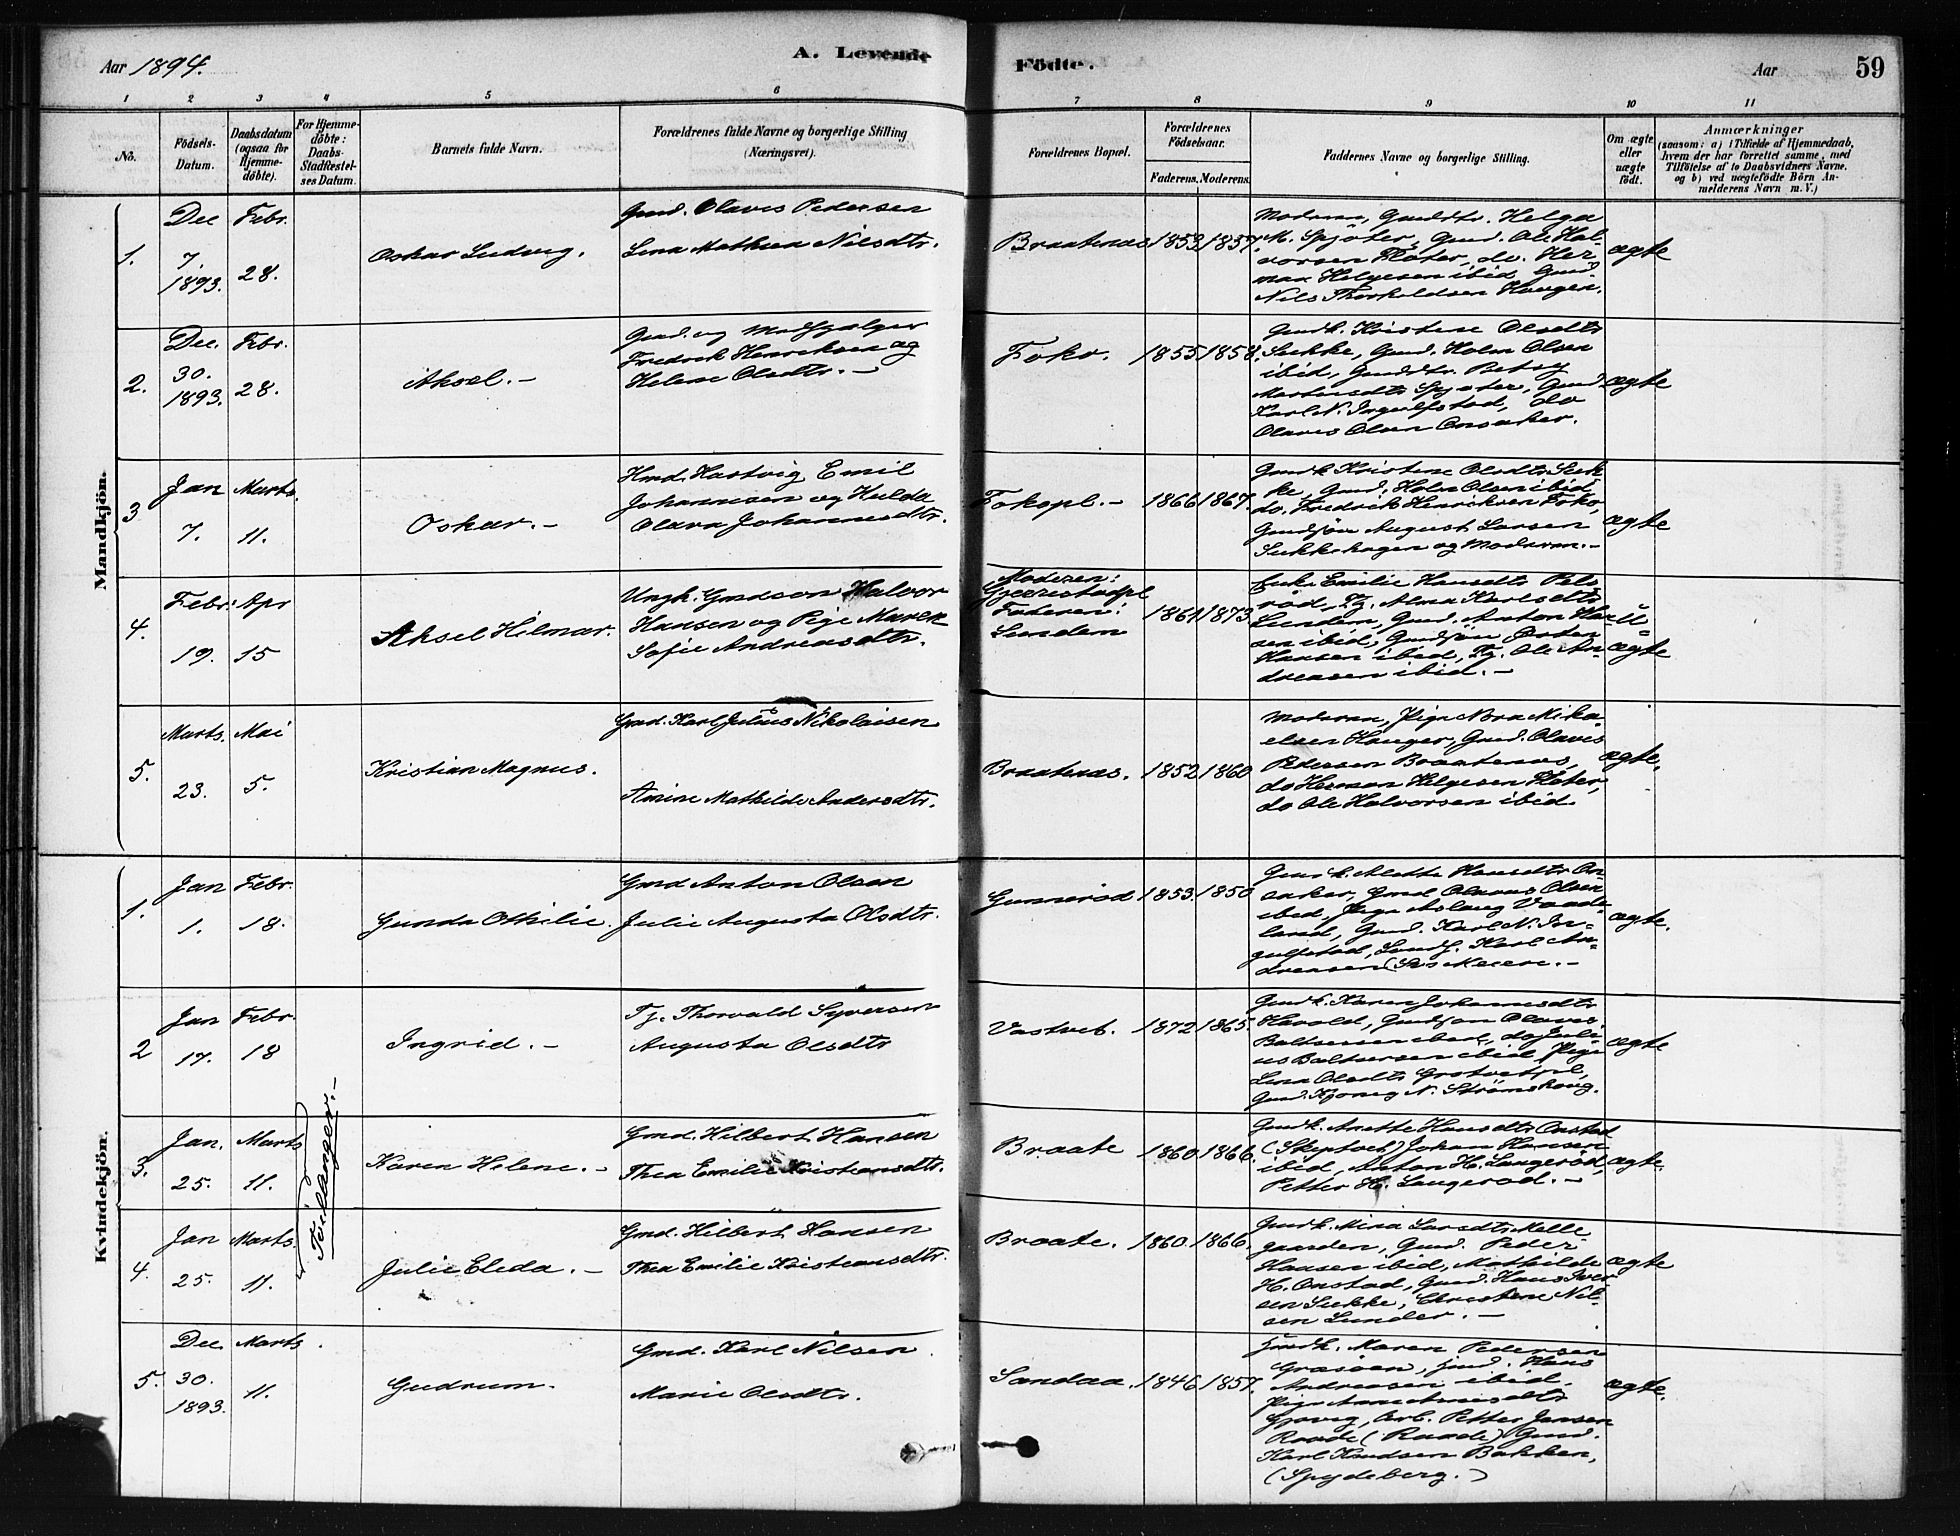 Aar 1894.
A. Levende
Födte.
Aar
59
1 2 3 4 5 6 7 8 9 10 11
No.
Födsels-
Datum.
Daabsdatum
(ogsaa for
Hjemme-
döbte).
For Hjemme-
döbte:
Daabs-
Stadfæstel-
ses Datum.
Barnets fulde Navn.
Forældrenes fulde Navne og borgerlige Stilling
(Næringsvei).
Forældrenes Bopæl.
Forældrenes
Födselsaar.
Faderens. Moderens.
Faddernes Navne og borgerlige Stilling.
Om ægte
eller
uægte
födt.
Anmærkninger
(saasom: a) i Tilfælde af Hjemmedaab,
hvem der har forrettet samme, med
Tilföielse af to Daabsvidners Navne.
og b) ved uægtefödte Börn An-
melderens Navn m. V.)
Mandkjön.
1.
Dec
7.
1893.
Febr.
28.
Oskar Ludvig.
Gmd. Olaves Pedersen
Lena Mathea Nilsdtr.
Braatenæs
1853
1857.
Moderen, Gmddtr. Helga
M. Spjøter, Gmd. Ole Hal-
vorsen Fløter, do. Her-
man Helgesen ibid, Gmd.
Nils Thorkeldsen Haugen.
ægte
2.
Dec.
30.
1893.
Febr.
28.
Aksel. -
Gmd. og
Fredrik Henriksen og
Helene Olsdtr. -
Foko.
1855
1858.
Gmdk. Kristine Olsdtr
Sukke, Gmd. Holm Olsen
ibid, Gmddtr. Betsy
Martinsdtr Spjøter, Gmd
Karl N. Ingulfstad, do
Olaves Olsen Onsaker.
ægte
3
Jan
7.
Marts.
11.
Oskar. -
Hmd. Hartvig Emil
Johannesen og Hulda
Olava Johannesdtr.
Fokopl. -
1866
1867.
Gmdk Kristine Olsdtr Suk
ke, Gmd. Holm Olsen ibid
do. Fredrik Henriksen Foko,
Gmdsøn August Larsen
Sukkehagen og Moderen. -
ægte
4.
Febr.
19.
Apr
15
Aksel Hilmar.
Ungk. Gmdsøn Halvor
Hansen og Pige Maren
Sofie Andreasdtr.
Moderen:
Faderen:
Lundem
1861
1873
Emilie Hansdtr
rød, Tj. Alma Karlsdtr
Lundem, Gmd. Anton Han
sen ibid, Gmdsøn
Hansen ibid, Tj. Ole An-
dreasen ibid. -
u-
ægte
5.
Marts.
23.
Mai
5.
Kristian Magnus.
Gmd. Karl Julius Nikolaisen
Amine Mathilde Andersdtr.
Braatenæs.
1852
1860
Moderen, Pige Nora Mika-
elsen Hauger, Gmd. Olaves
Pedersen Braatenæs,
do Herman Helgesen Fløter,
do Ole Halvorsen ibid.
ægte.
Kvindekjön.
1.
Jan
1.
Febr.
18.
Gunda Othilie.
Gmd Anton Olsen
Julie Augusta Olsdtr.
Gunnerød
1853.
1850
Gmdk. Alette Hansdtr On-
saker, Gmd Olaves Olsen
ibid, Pige Aslaug Vaade-
land, Gmd. Karl N. In-
gulfstad, Karl An-
dreasen
ægte.
2
Jan
17.
Febr.
18
Ingrid. -
Tj. Thorvald Syversen
Augusta Olsdtr
Vastvet.
1872
1865.
Gmdk. Karen Johannesdtr
Havold, Gmdsøn Olaves
Baltsersen ibid, do Juli-
us Baltsersen ibid, Pige
Lina Olsdtr
Gmd. N. Strømshaug.
ægte
Tvillinger. -
3.
Jan.
25.
Marts
11.
Karen Helene. -
Gmd. Hilbert Hansen
Thea Emilie Kristiansdtr.
Braate
1860
1866.
Gmdk. Anette Hansdtr Onstad
(Skiptvet) Johan Hansen
ibid, Anton H. Langerød,
Petter H. Langerød. -
ægte.
4.
Jan
25.
Marts.
11.
Julie Eleda. -
Gmd. Hilbert Hansen
Thea Emilie Kristiansdtr.
Braate.
1860.
1866.
Gmdk. Mina Larsdtr Melle
gaarden, Gmd. Peder
Hansen ibid, Mathilde
H. Onstad, Gmd. Hans Iver
sen Sukke, Christine Nil-
sen Lunder. -
ægte
5.
Dec.
30.
1893.
Marts
11.
Gudrun.
Gmd. Karl Nilsen
Marie Olsdtr.
Sandaa.
1846
1857.
Gmdk. Maren Pedersen
Gmd. Hans
Andreasen ibid.
Pige
Arb. Petter Jansen
Raade (Raade) Gmd.
Karl Knudsen Bakken,
(Spydeberg.)
ægte.